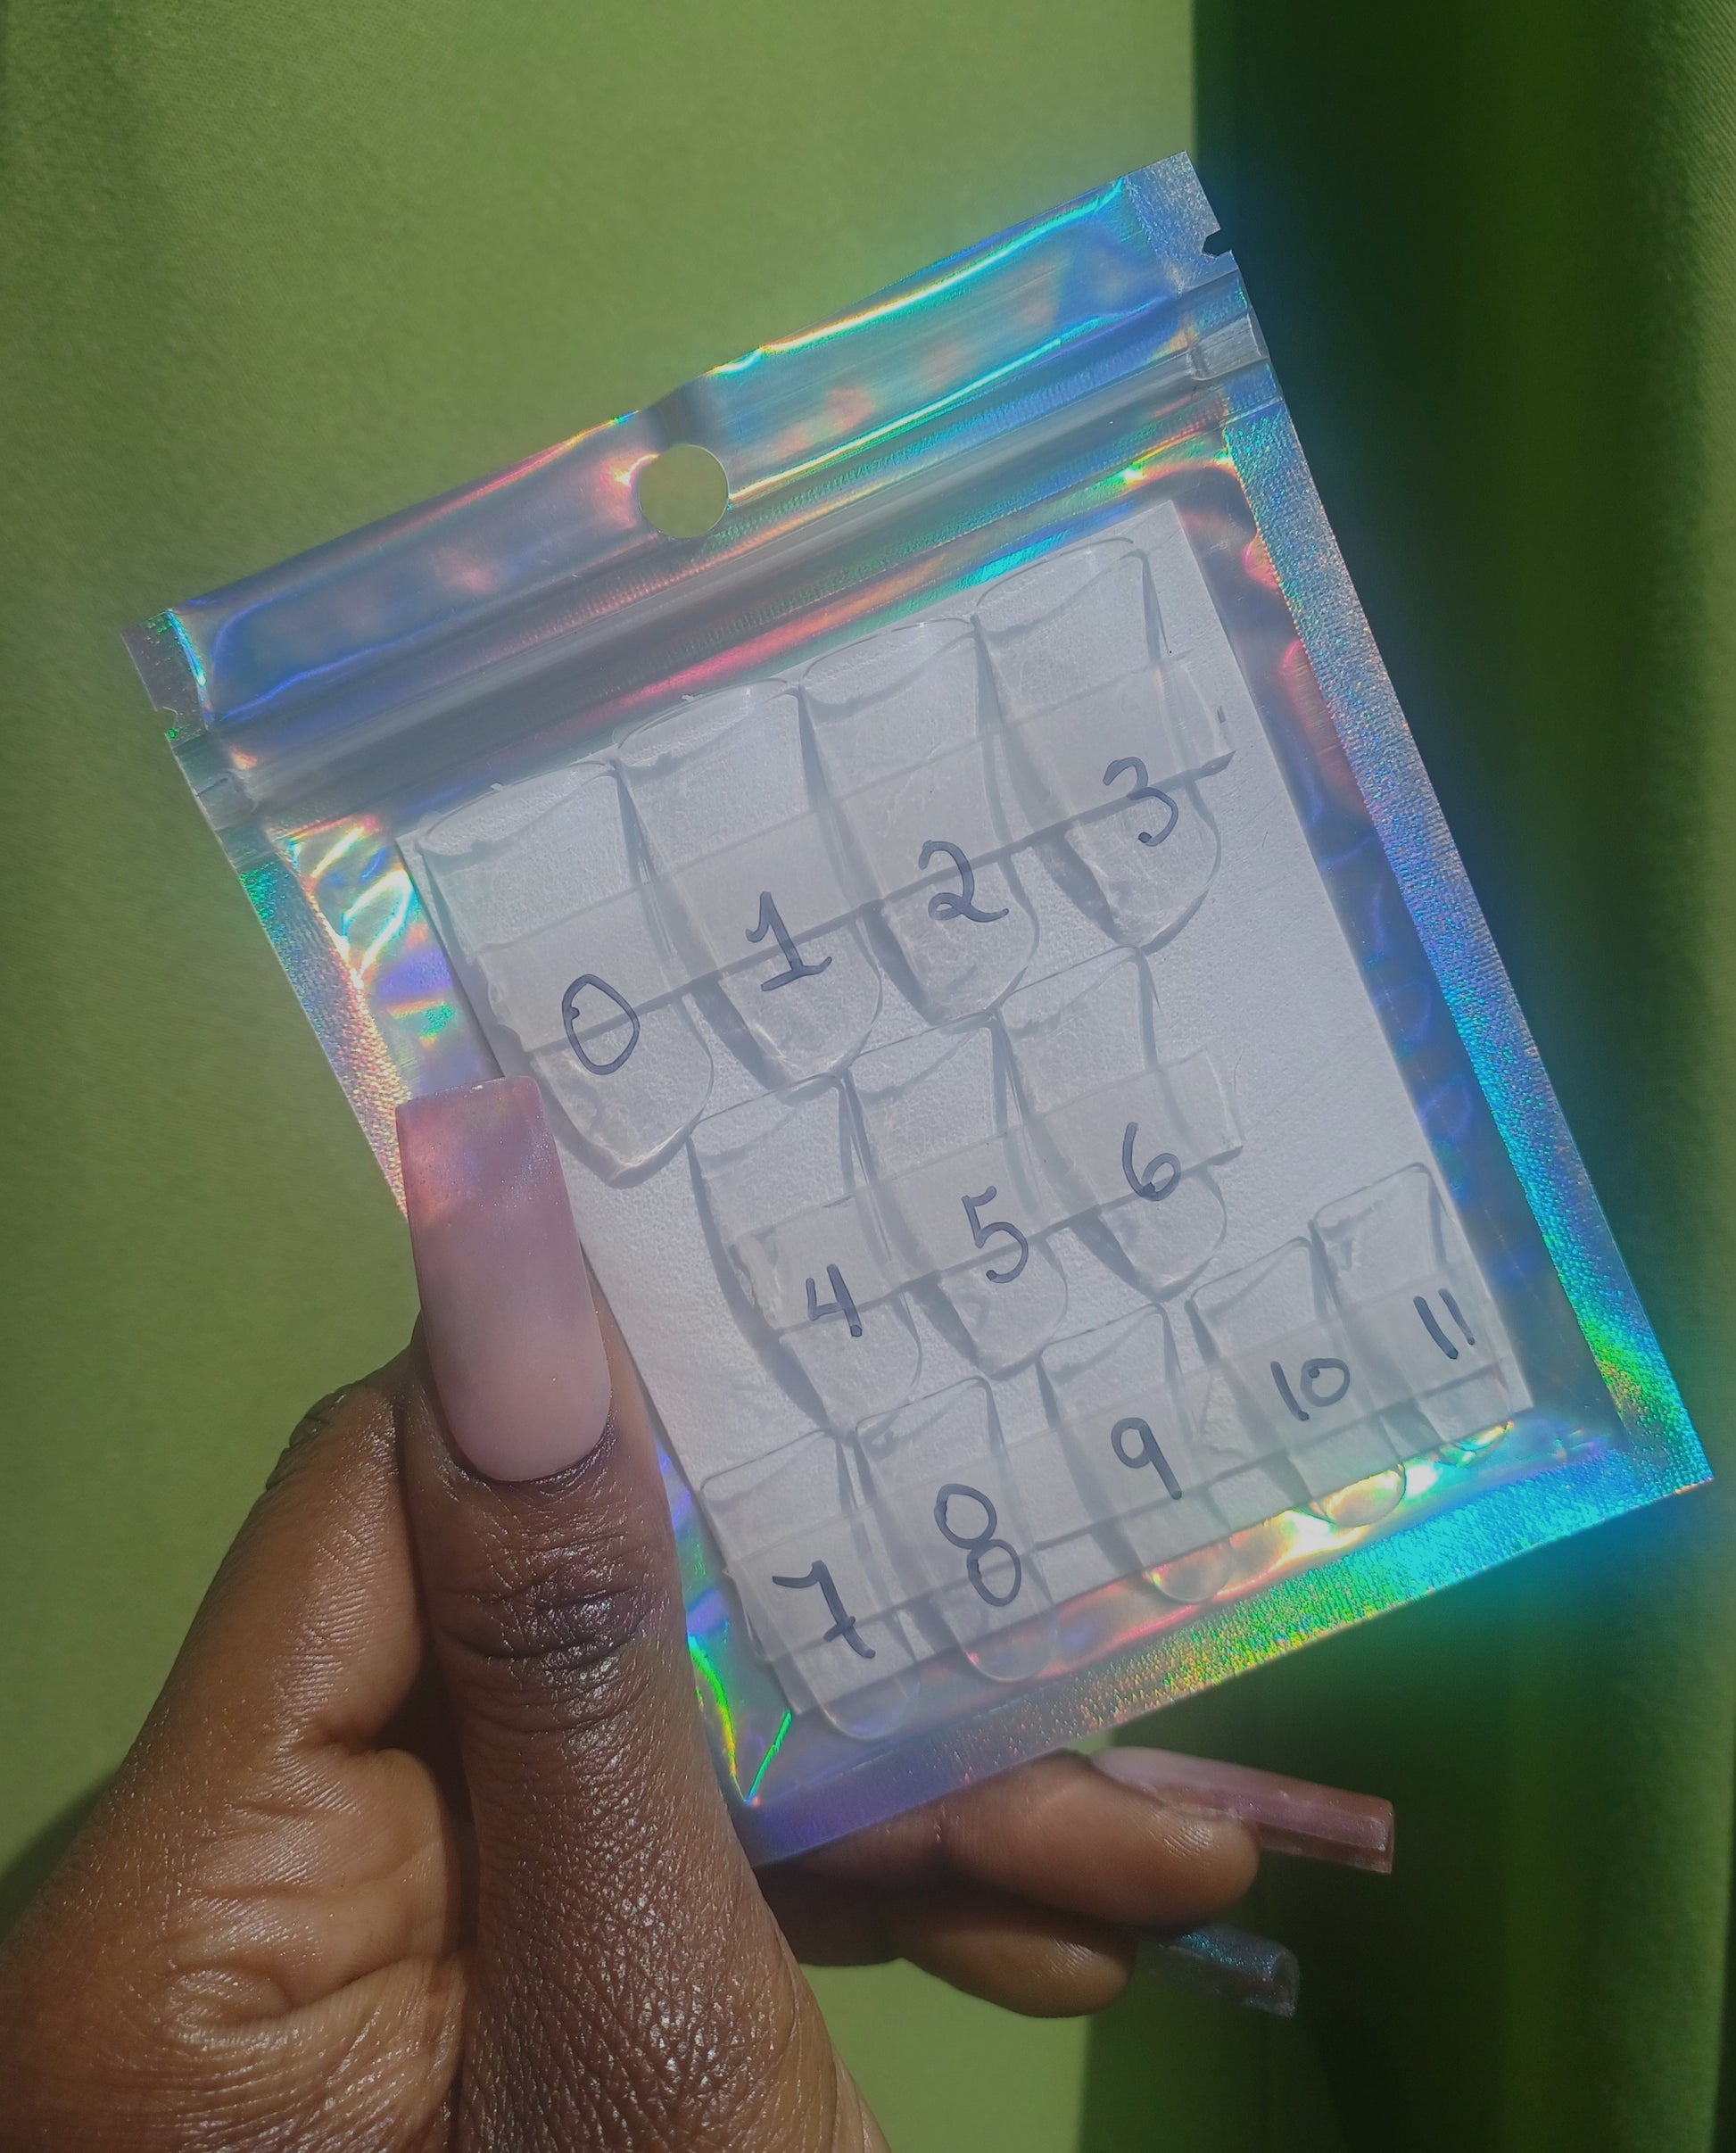 0 1 2 3
4 5 6
7 8 9 10 11